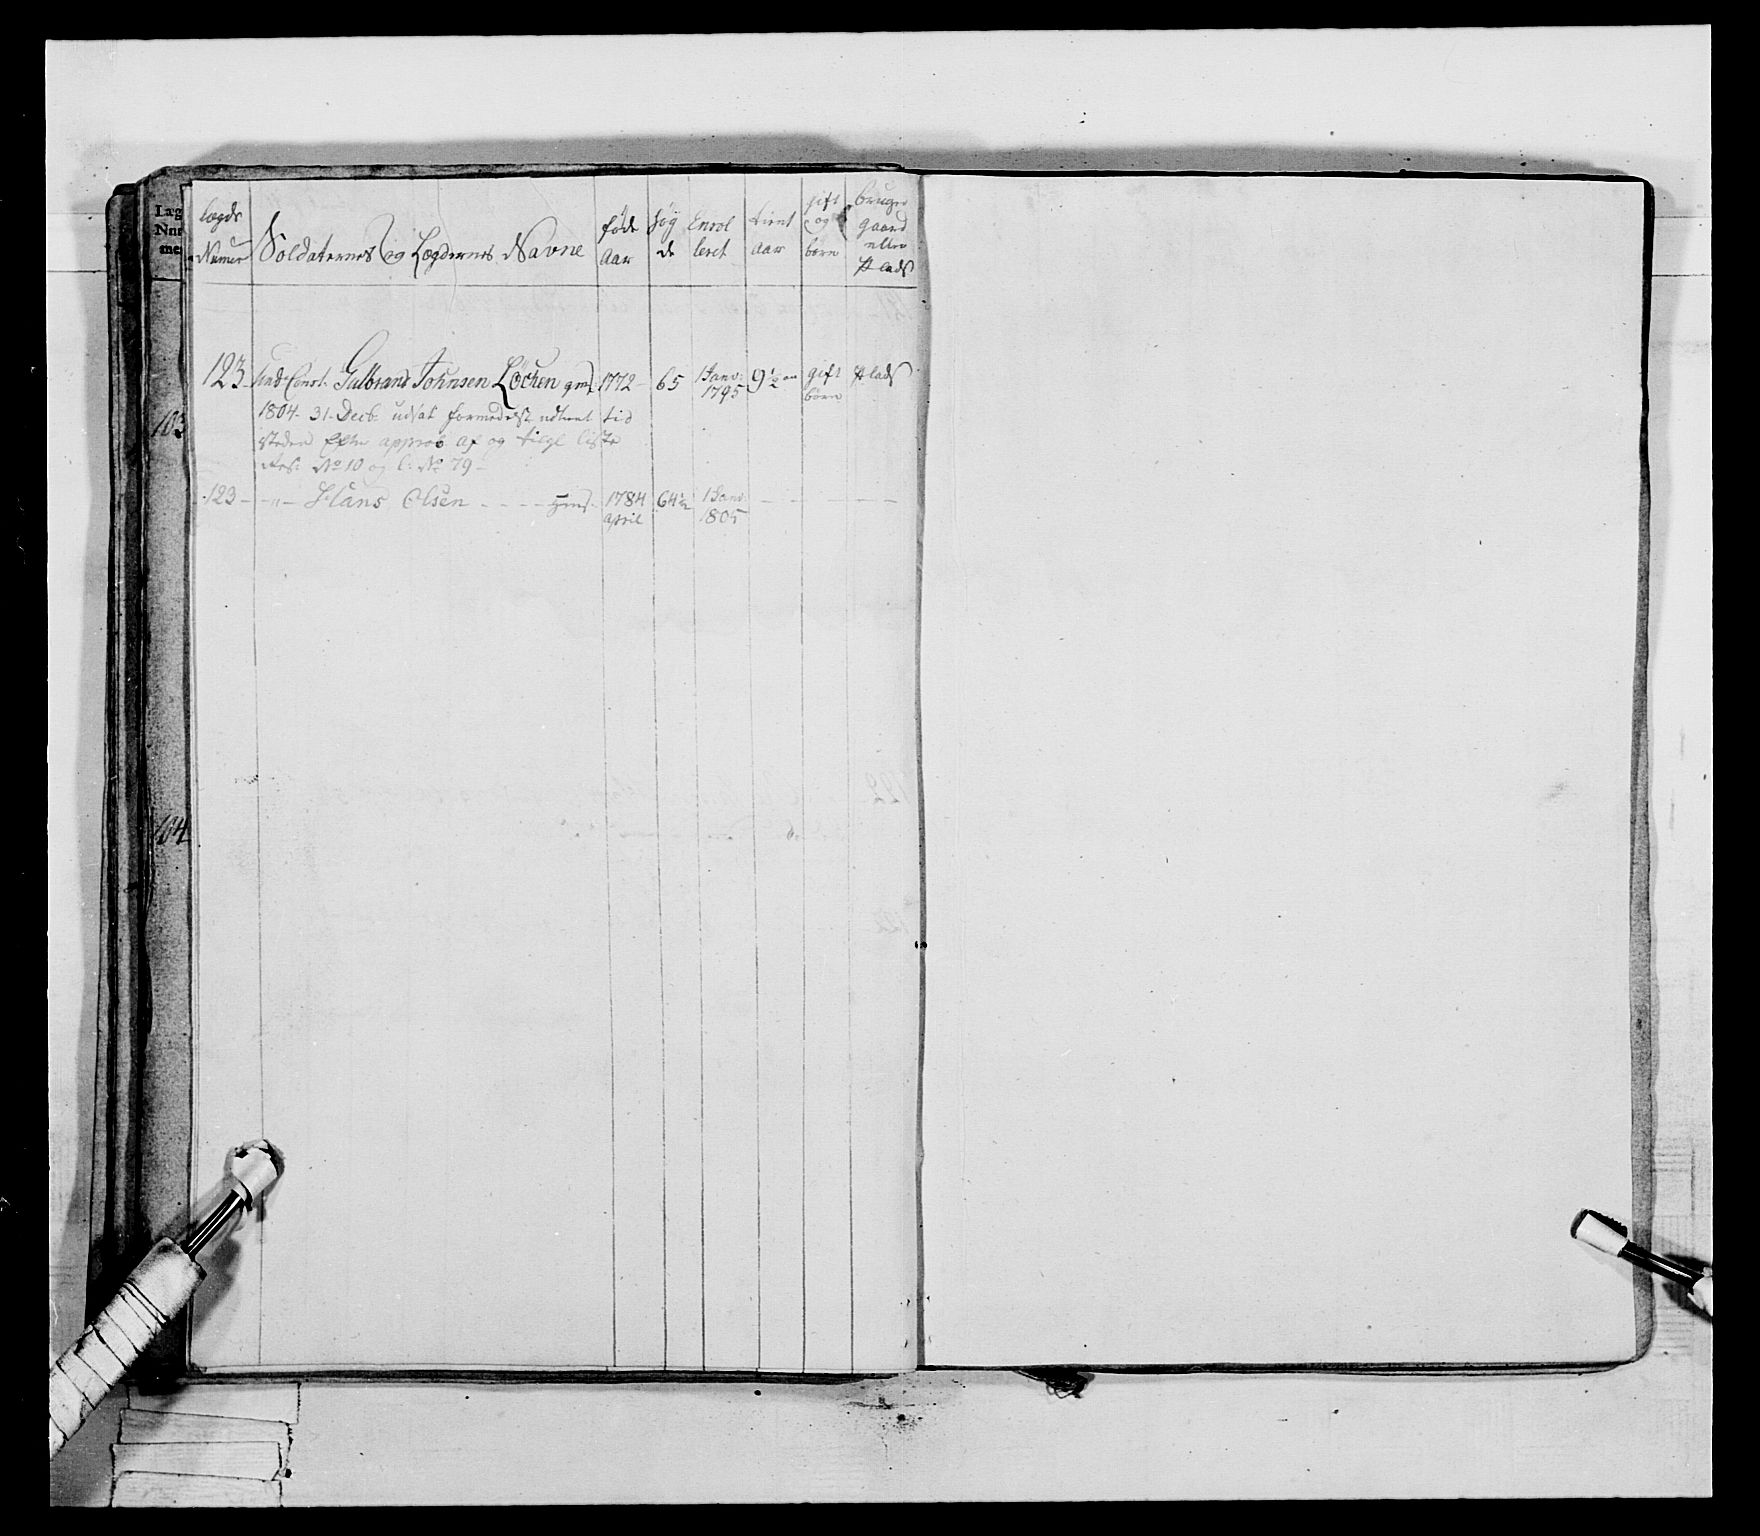 lægds Numer
Soldaternes og Lægdernes Navne
føde Aar
høy de
Enrol leret
tient Aar
gift og børn
bruger gaard eller Plads
Læg
Nu
me
123 Und Const. Gulbrand Johnsen Løchen 1772 65 1 Janv: 1795 9½ aar gift børn Plads
103
1804. 31. Decb. udsat formedelst udtient tid
steden Efter approb af og tilgl liste
Res: No 10 og l: No 79
123 - " - Hans Olsen - - - - 1784 April 64½ 1 Janv: 1805
104